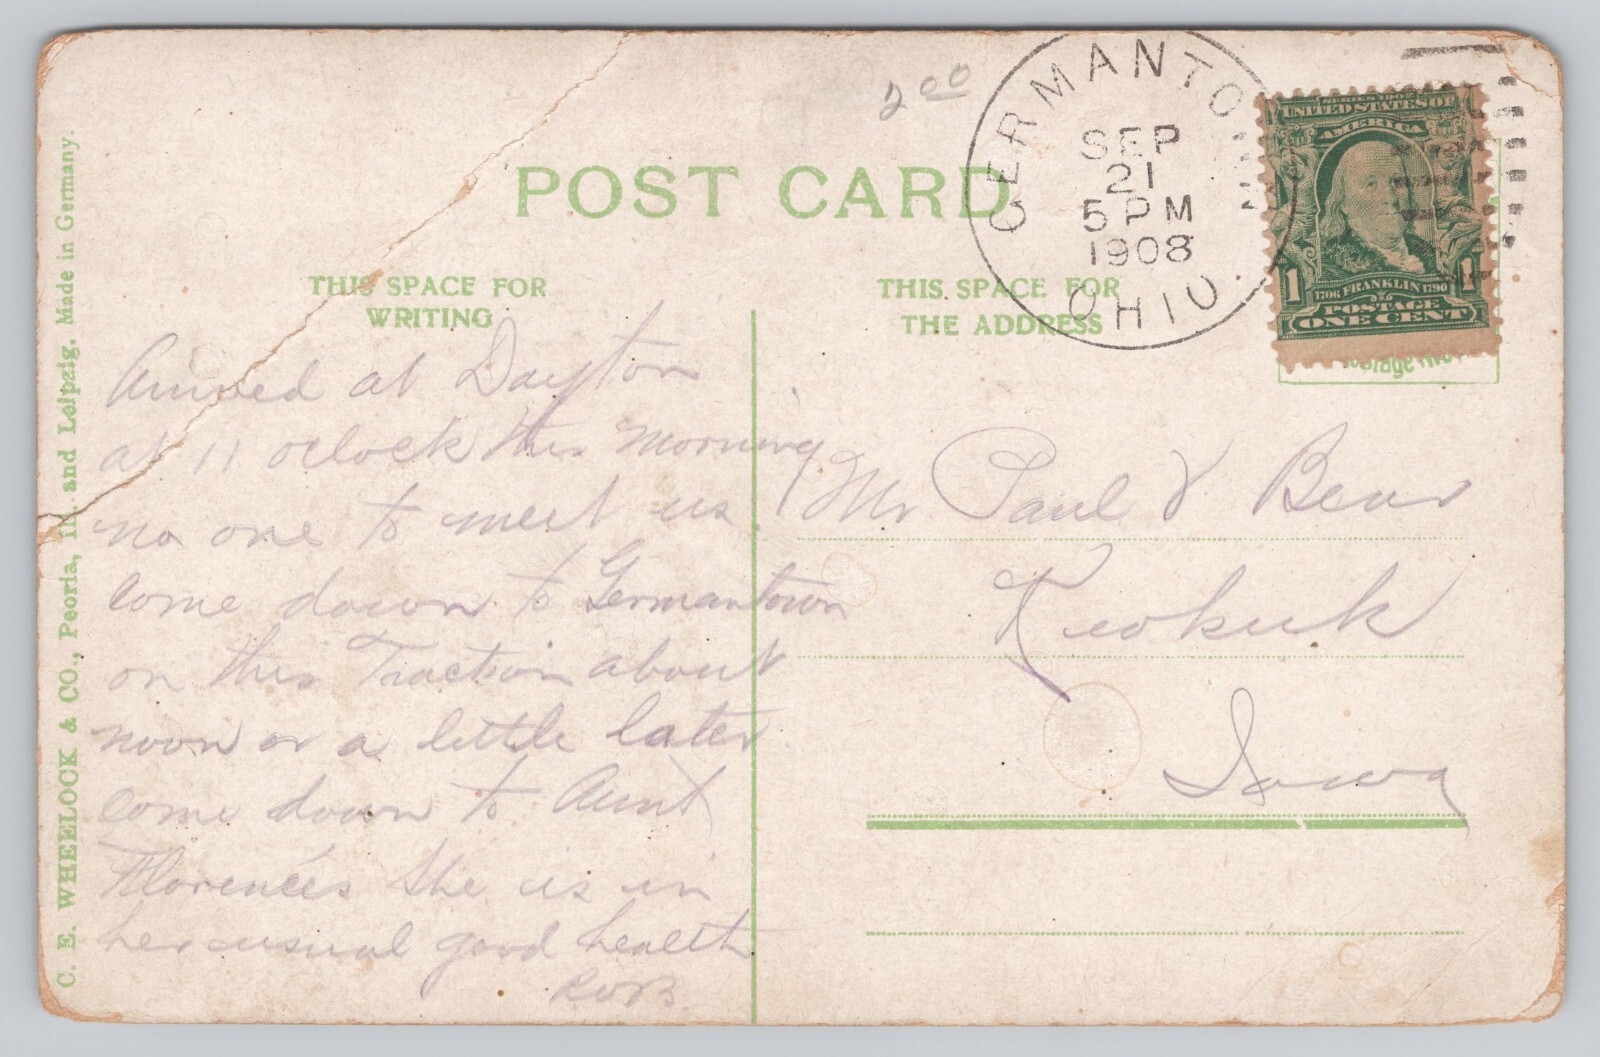 2 00
GERMANTOWN
SEP
21
5 PM
1908
OHIO.
SERIES 1902
UNITED STATES OF
AMERICA
1 1
1706 FRANKLIN 1790
POSTAGE
ONE CENT
POST CARD
THIS SPACE FOR
WRITING
THIS SPACE FOR
THE ADDRESS
C. E. WHEELOCK & CO., Peoria, Ill. and Leipzig. Made in Germany.
Arrived at Dayton
at 11 oclock this morning
no one to meet us
come down to Germantown
on this Traction about
noon or a little later
come down to Aunt
Florence's she is in
her usual good health
Mr Paul Bear
Keokuk
Iowa